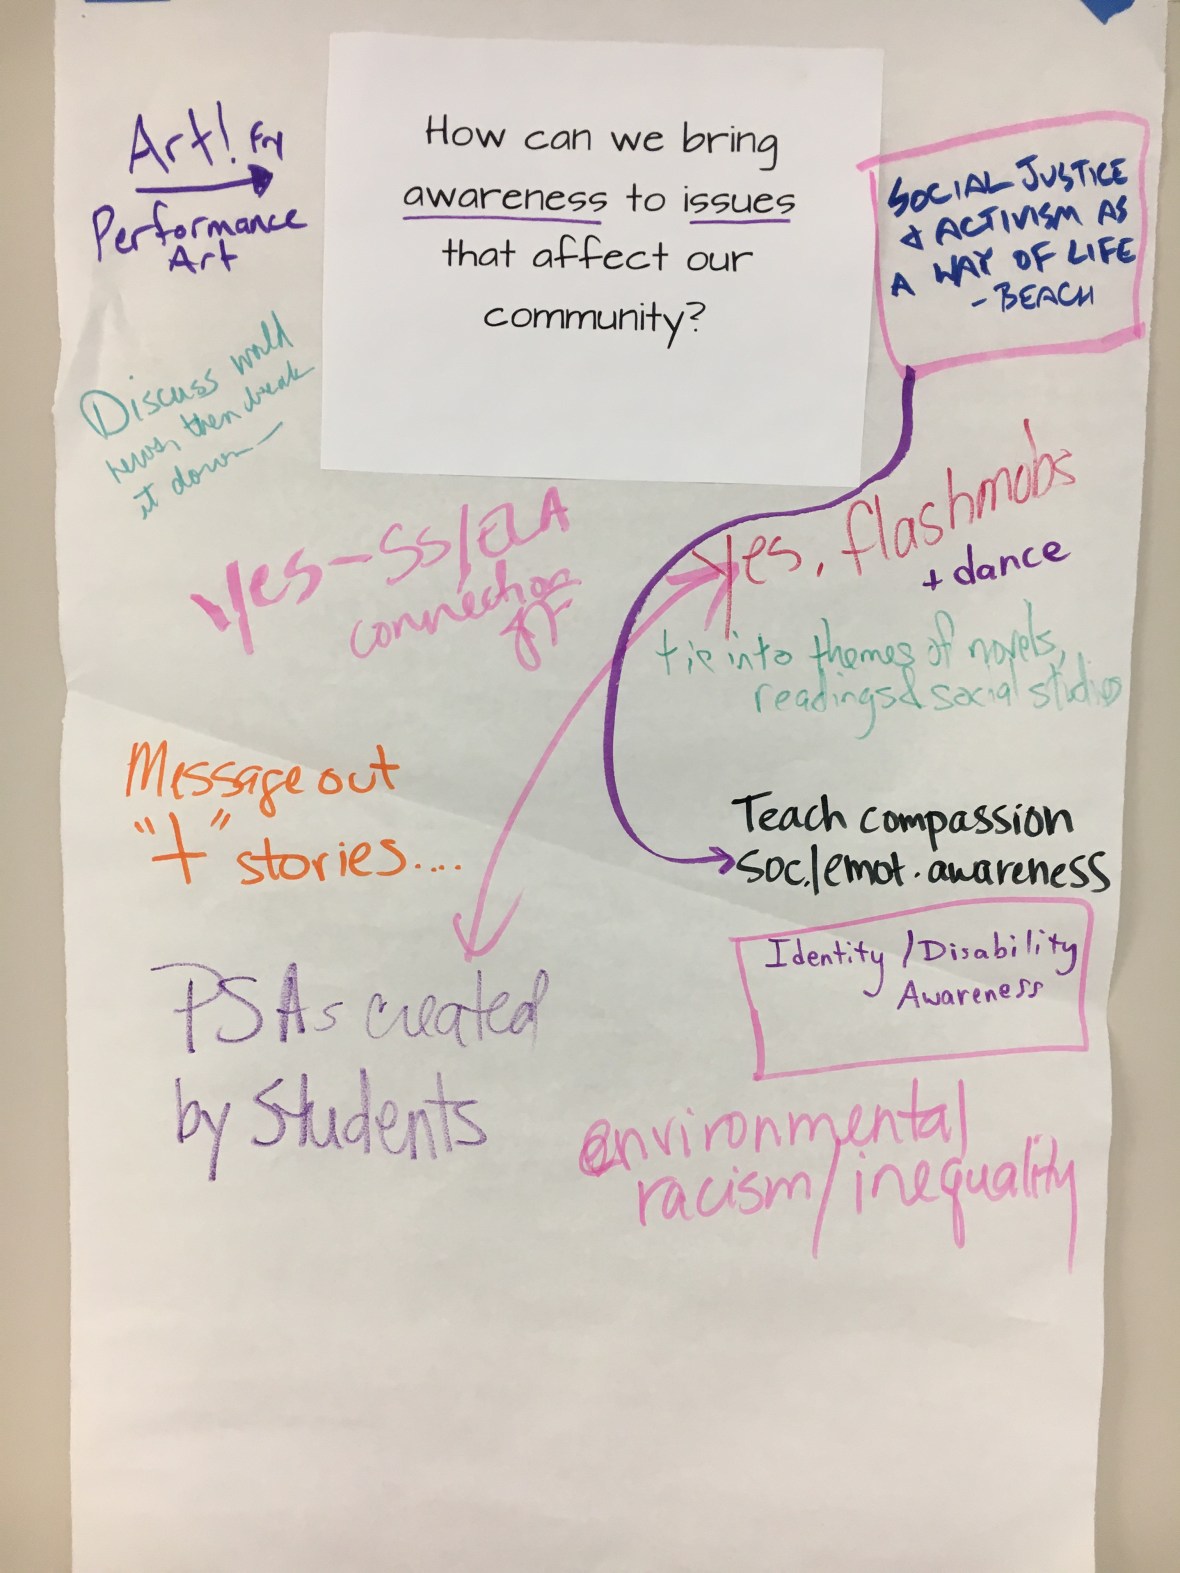 How can we bring
awareness to issues
that affect our
community?
Art! Fry
Performance
Art
SOCIAL JUSTICE
& ACTIVISM AS
A WAY OF LIFE
- BEACH
Discuss world
news, then break
it down—
yes - SS/ELA
connection
yes, flashmobs
+ dance
tie into themes of novels,
readings & social studies
Message out
"+" stories....
Teach compassion
soc./emot. awareness
Identity / Disability
Awareness
PSAs created
by Students
environmental
racism/inequality